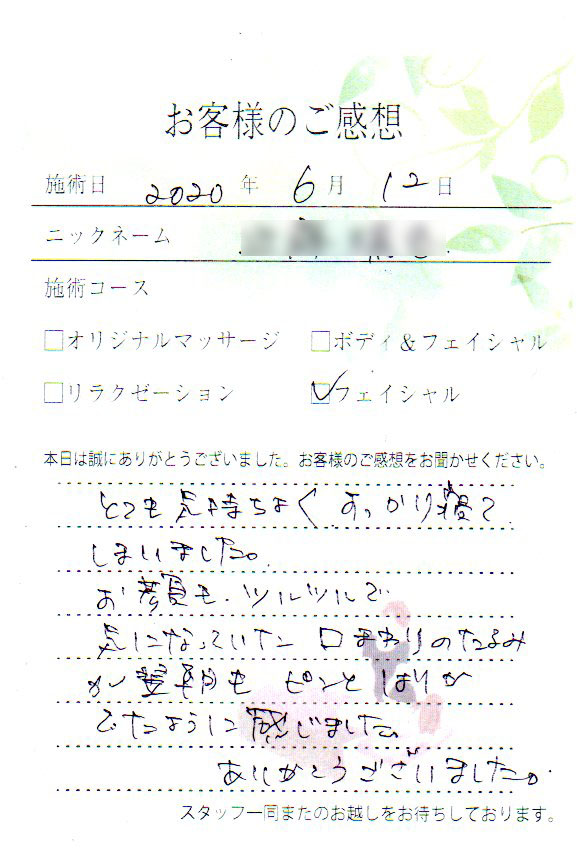 お客様のご感想
施術日 2020 年 6 月 12 日
ニックネーム
施術コース
□オリジナルマッサージ □ボディ＆フェイシャル
□リラクゼーション ☑フェイシャル
本日は誠にありがとうございました。お客様のご感想をお聞かせください。
とても気持ちよく すっかり寝て
しまいました。
お顔も、ツルツルで
気になっていた 口まわりのたるみ
が 翌朝も ピンと はりが
でたように 感じました。
ありがとうございました。
スタッフ一同またのお越しをお待ちしております。